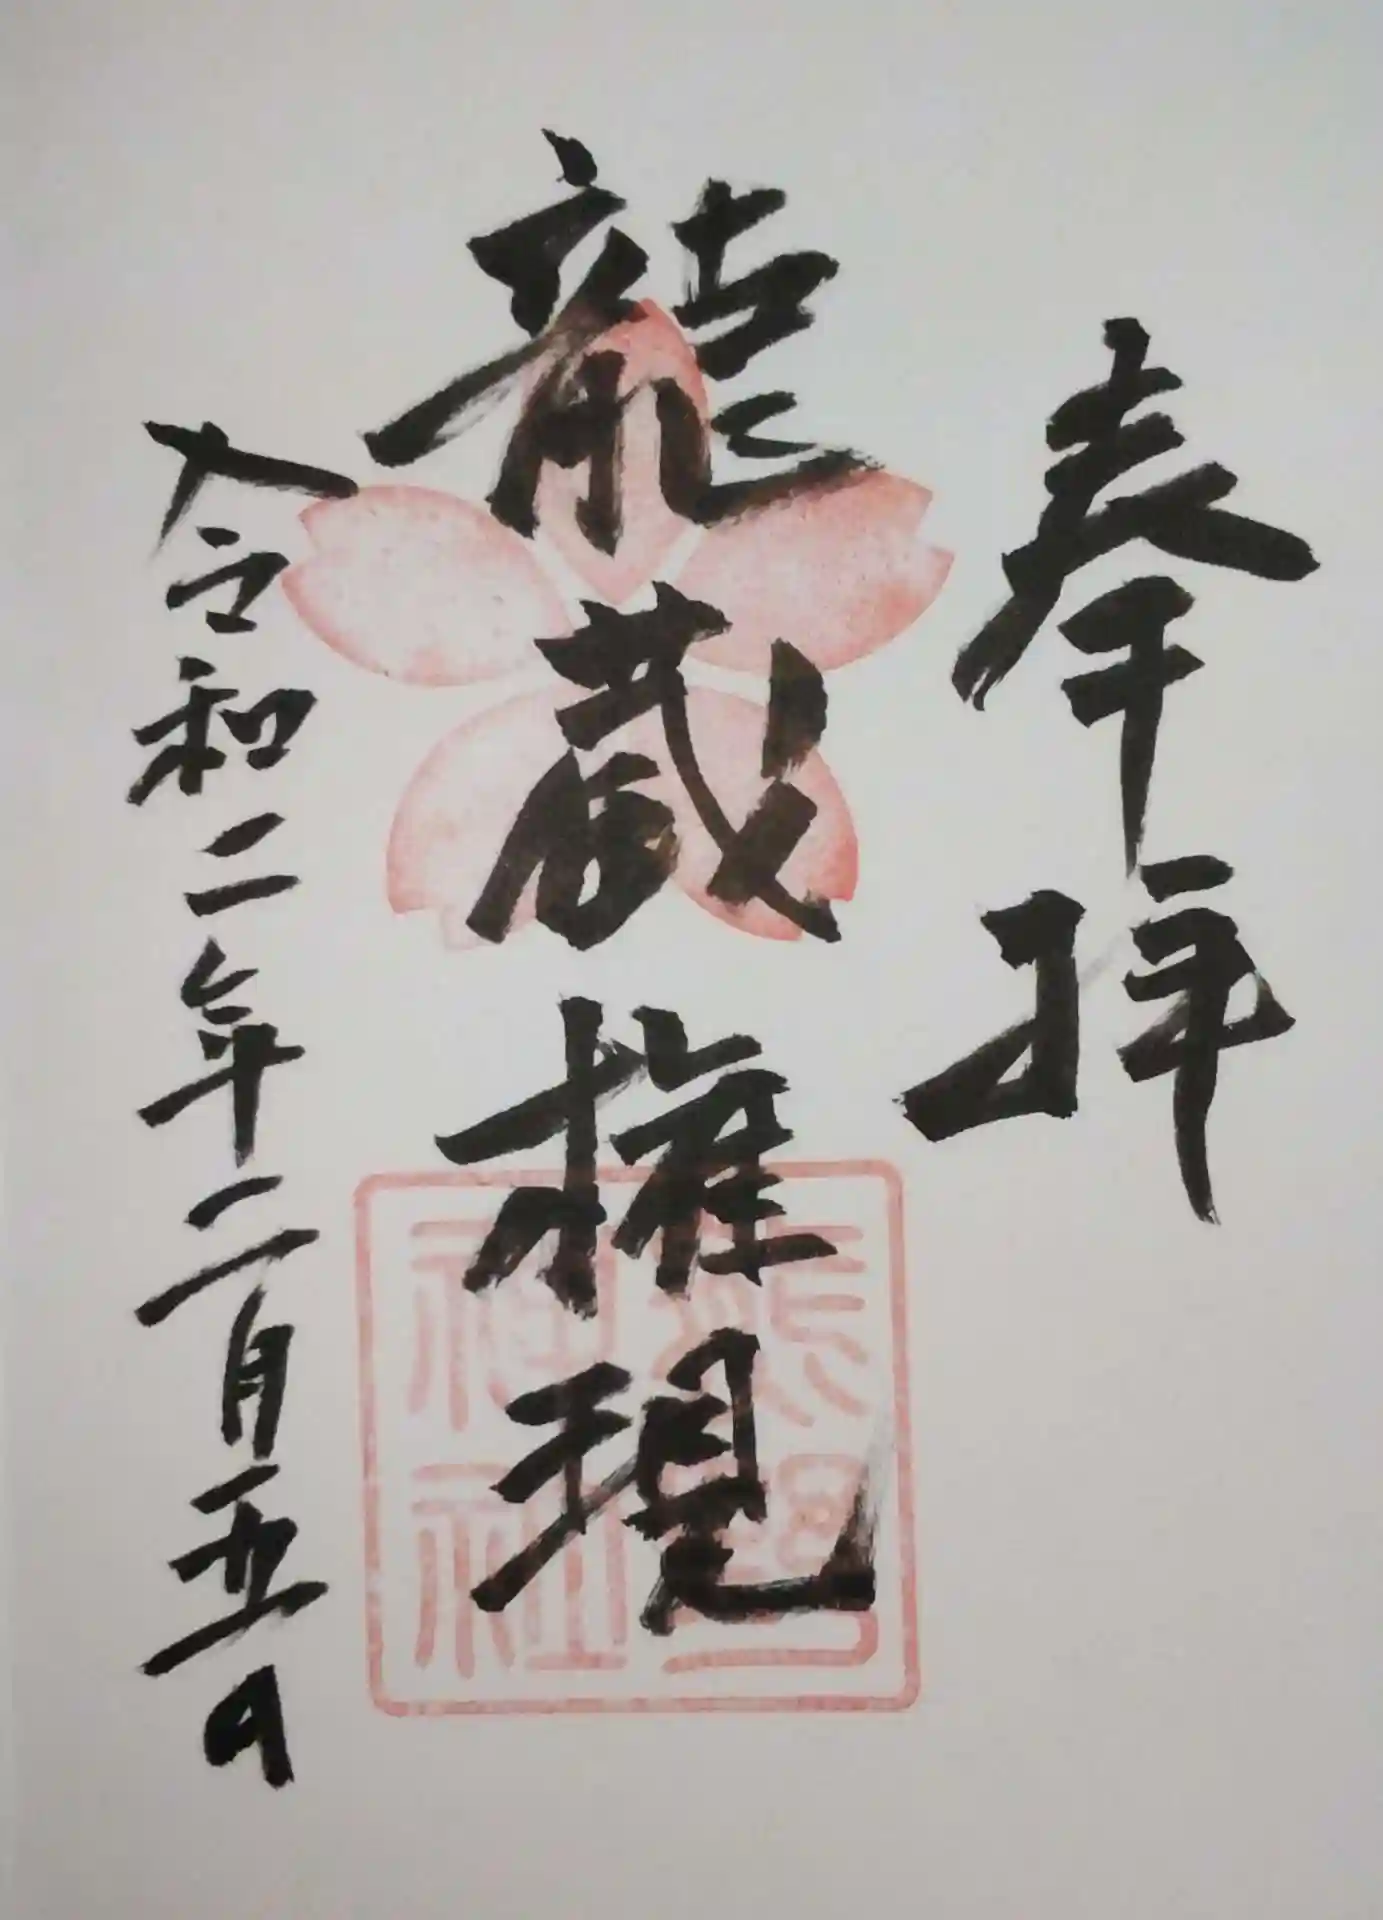 奉拝
龍蔵権現
令和二年二月五日
熊野
神社